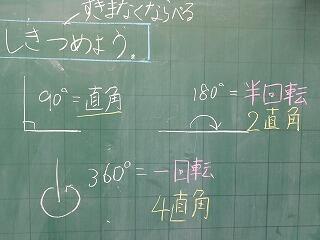 すきまなくならべる
しきつめよう。
90°=直角
180°=半回転
2直角
360°=一回転
4直角